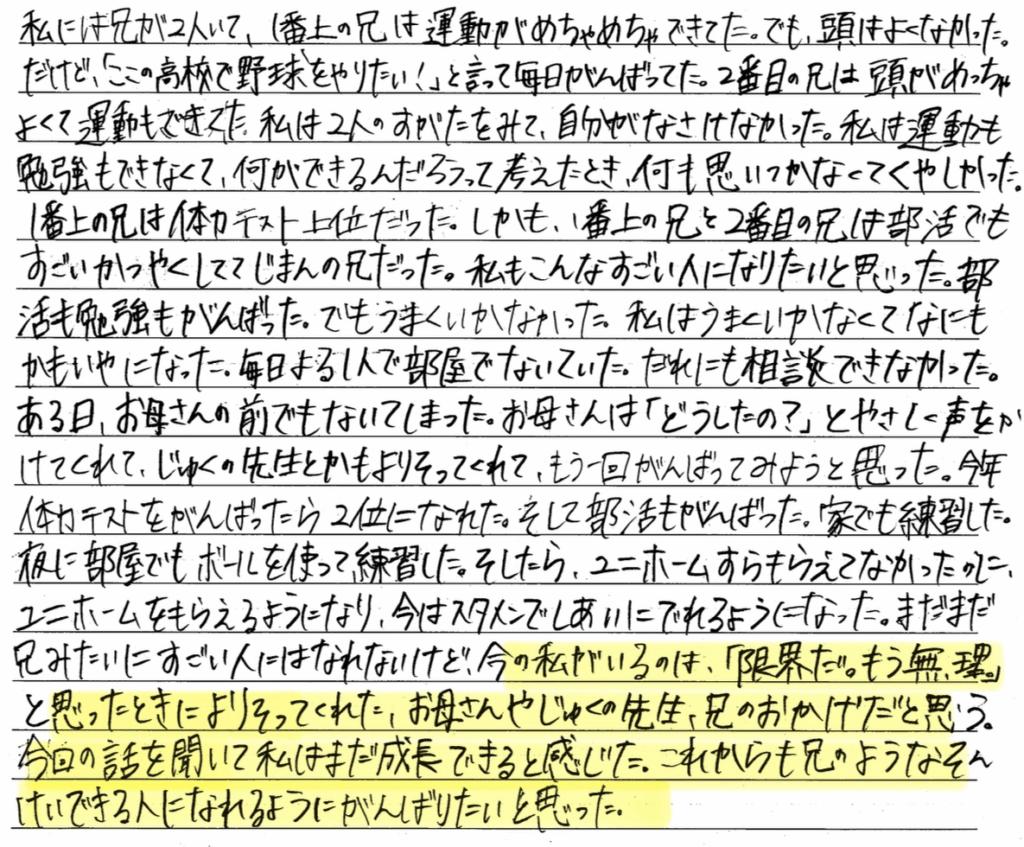 私には兄が2人いて、1番上の兄は運動がめちゃめちゃできてた。でも、頭はよくなかった。
だけど、「ここの高校で野球をやりたい!」と言って毎日がんばってた。2番目の兄は頭がめっちゃ
よくて運動もできてた。私は2人のすがたをみて、自分がなさけなかった。私は運動も
勉強もできなくて、何ができるんだろうって考えたとき、何も思いつかなくてくやしかった。
1番上の兄は体力テスト上位だった。しかも、1番上の兄と2番目の兄は部活でも
すごいかつやくしててじまんの兄だった。私もこんなすごい人になりたいと思った。部
活も勉強もがんばった。でもうまくいかなかった。私はうまくいかなくてなにも
かもいやになった。毎日よる1人で部屋でないていた。だれにも相談できなかった。
ある日、お母さんの前でもないてしまった。お母さんは「どうしたの?」とやさしく声をか
けてくれて、じゅくの先生とかもよりそってくれて、もう一回がんばってみようと思った。今年
体力テストをがんばったら2位になれた。そして部活もがんばった。家でも練習した。
夜に部屋でもボールを使って練習した。そしたら、ユニホームすらもらえてなかったのに、
ユニホームをもらえるようになり、今はスタメンでしあいにでれるようになった。まだまだ
兄みたいにすごい人にはなれないけど、今の私がいるのは、「限界だ。もう無理。」
と思ったときによりそってくれた、お母さんやじゅくの先生、兄のおかげだと思う。
今回の話を聞いて私はまだ成長できると感じた。これからも兄のようなそん
けいできる人になれるようにがんばりたいと思った。